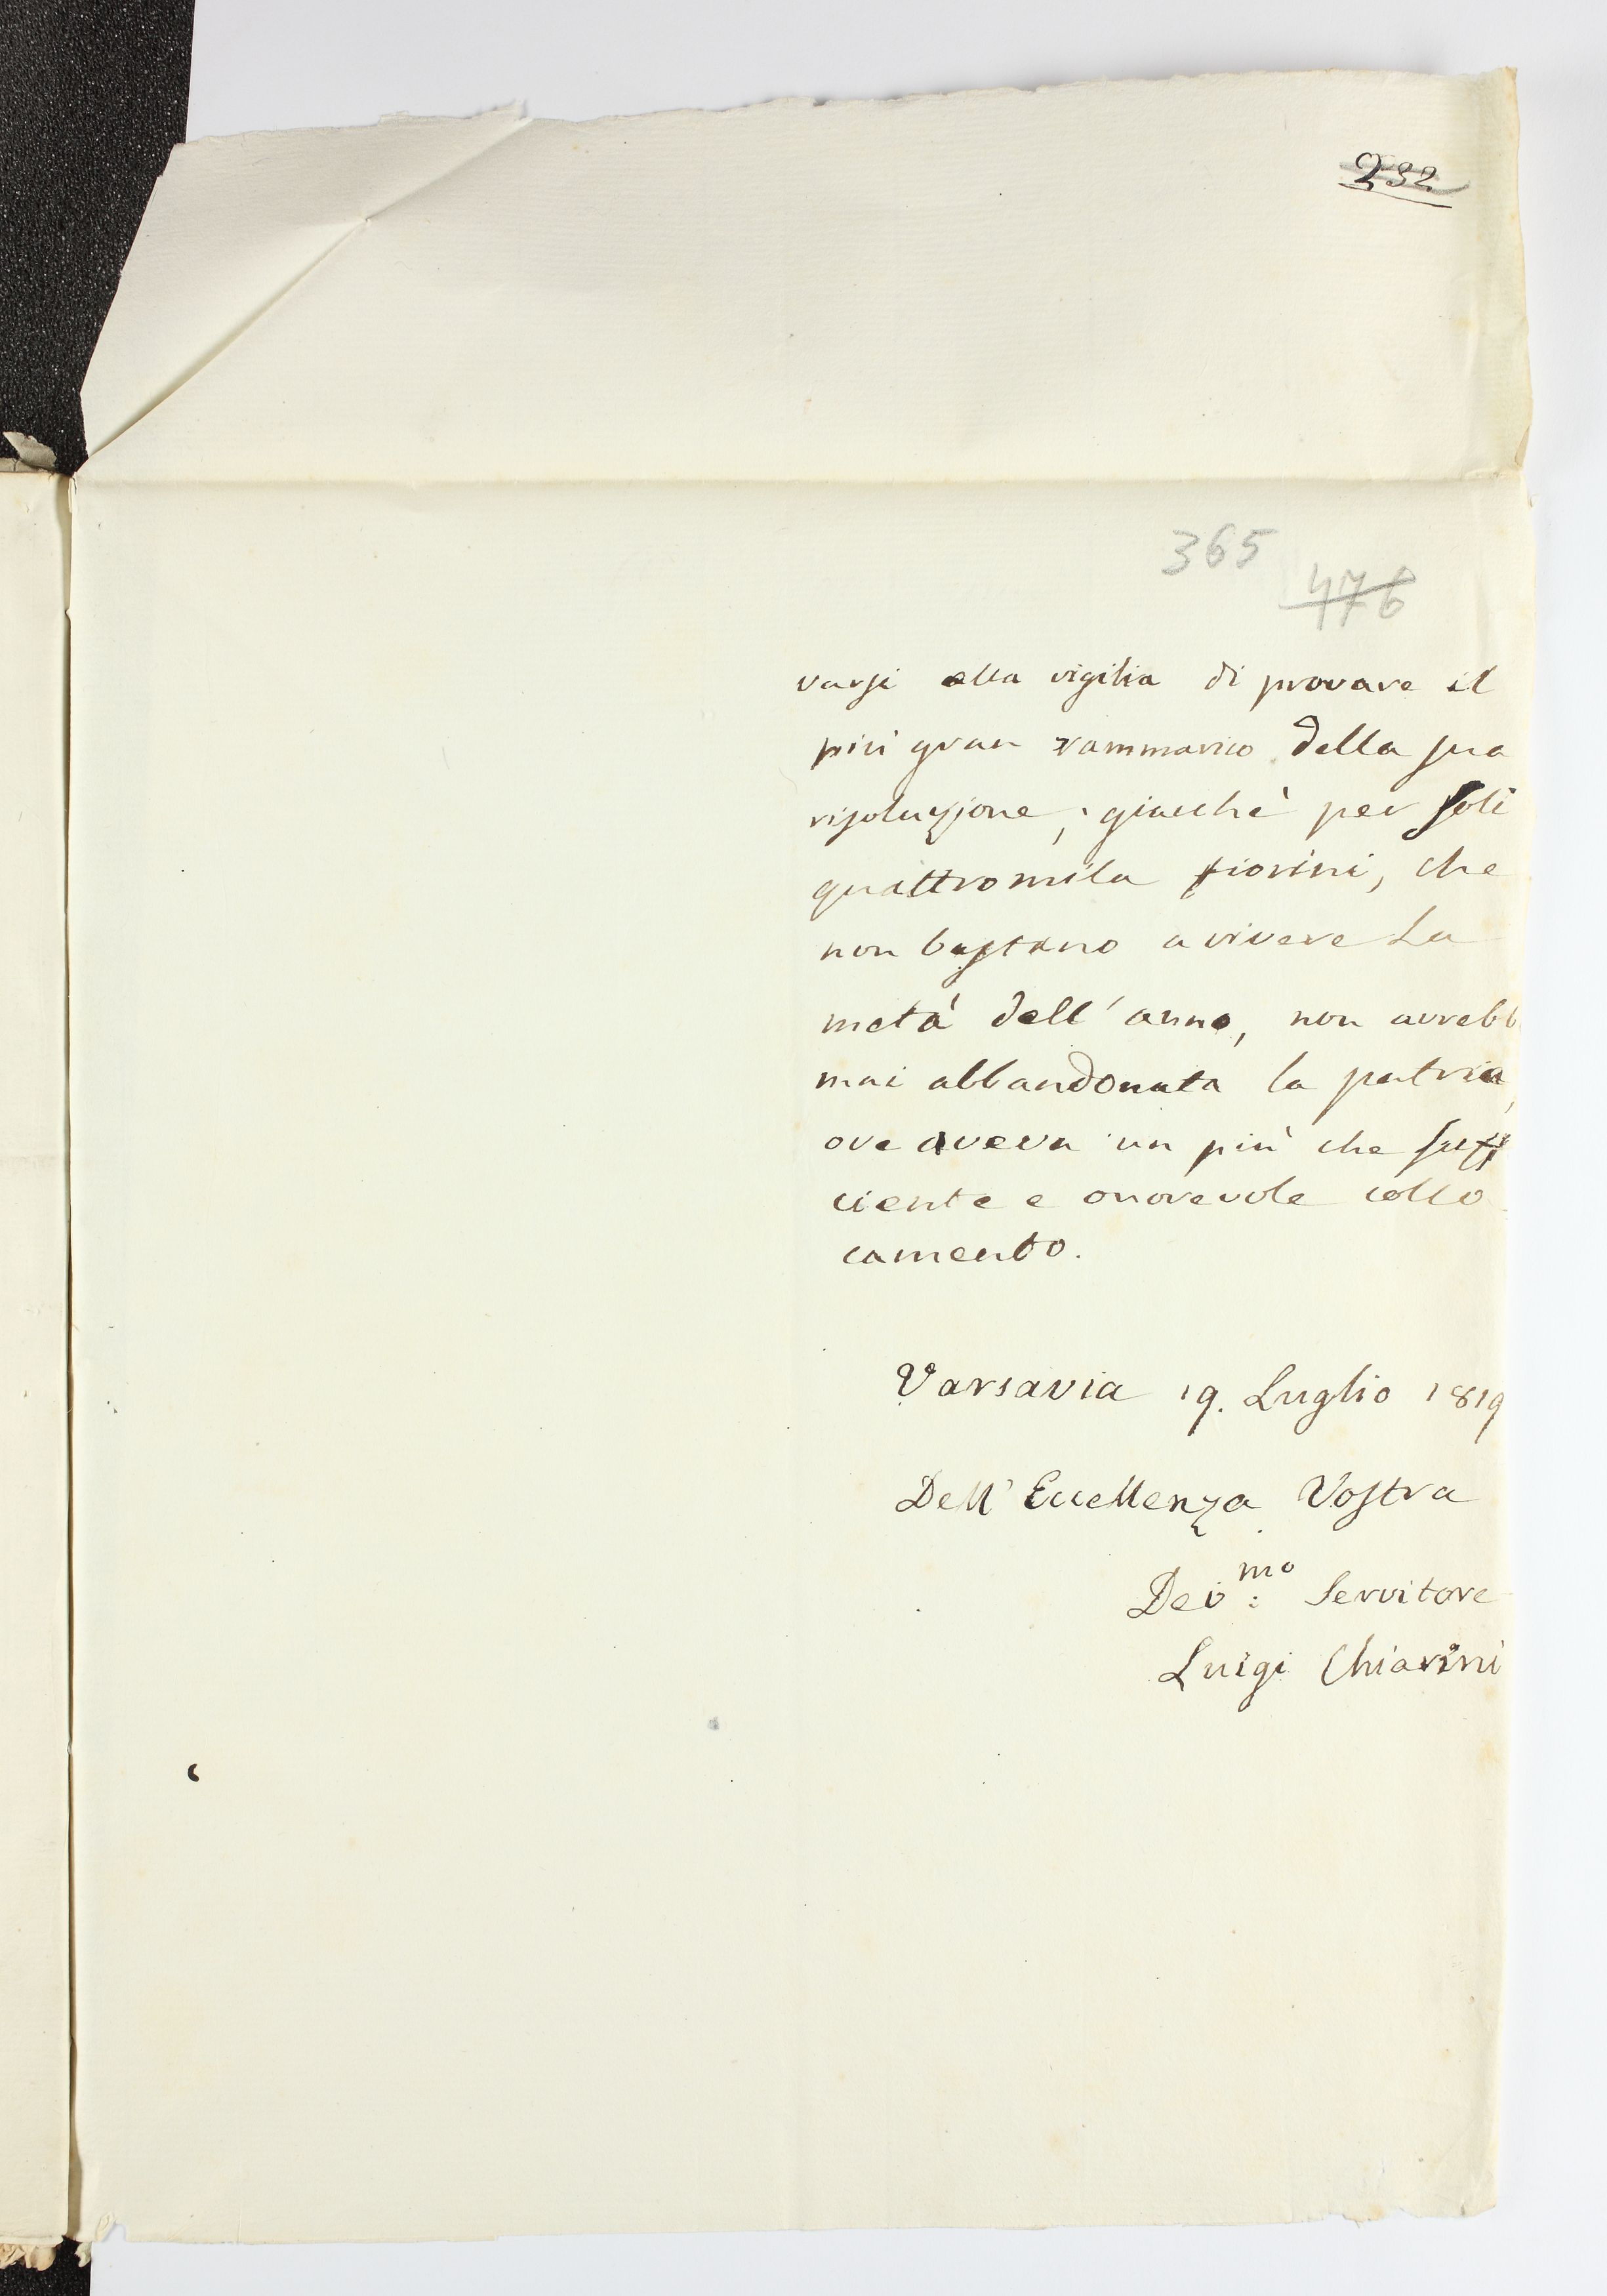 232
365
476
varsi alla vigilia di provare il
più gran rammarico della sua
risoluzione, giacchè per soli
quattromila fiorini, che
non bastano a vivere la
metà dell'anno, non avrebb
mai abbandonata la patria,
ove aveva un più che suffi
ciente e onorevole collo
camento.
Varsavia 19. Luglio 1819
Dell'Eccellenza Vostra
Dev:mo Servitore
Luigi Chiarini